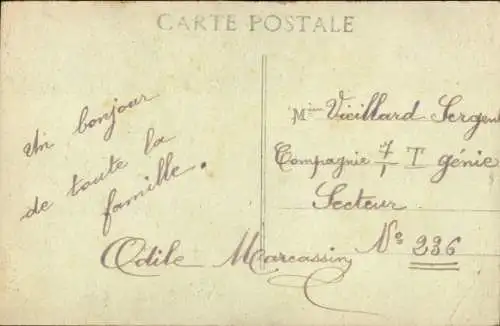 CARTE POSTALE
Un bonjour
de toute la
famille.
Odile Marcassin
Mr Vieillard Sergent
Compagnie 7/1 T génie
Secteur
No 236